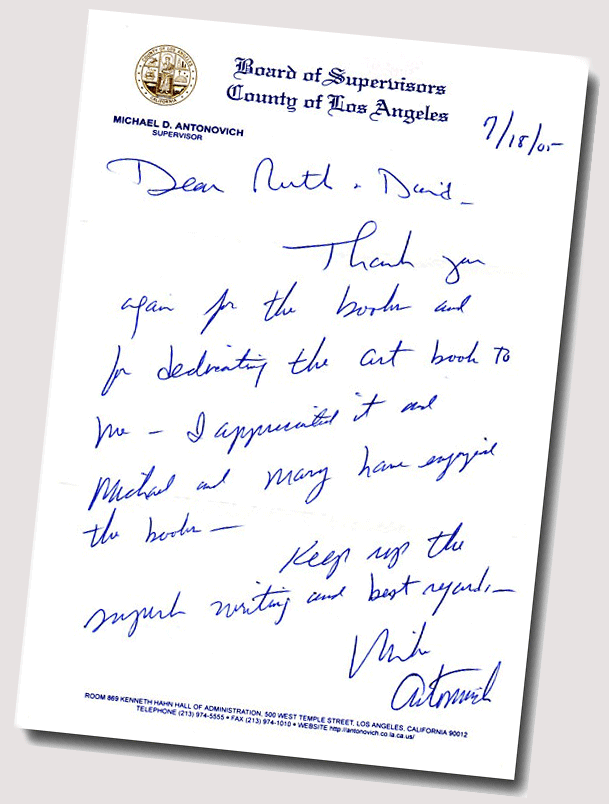 Board of Supervisors
County of Los Angeles
MICHAEL D. ANTONOVICH
SUPERVISOR
7/18/05
Dear Ruth & David -
Thank you
again for the books and
for dedicating the art book to
me - I appreciated it and
Michael and Mary have enjoyed
the books -
Keep up the
superb writing and best regards -
Mike
Antonovich
ROOM 869 KENNETH HAHN HALL OF ADMINISTRATION, 500 WEST TEMPLE STREET, LOS ANGELES, CALIFORNIA 90012
TELEPHONE (213) 974-5555 • FAX (213) 974-1010 • WEBSITE http://antonovich.co.la.ca.us/